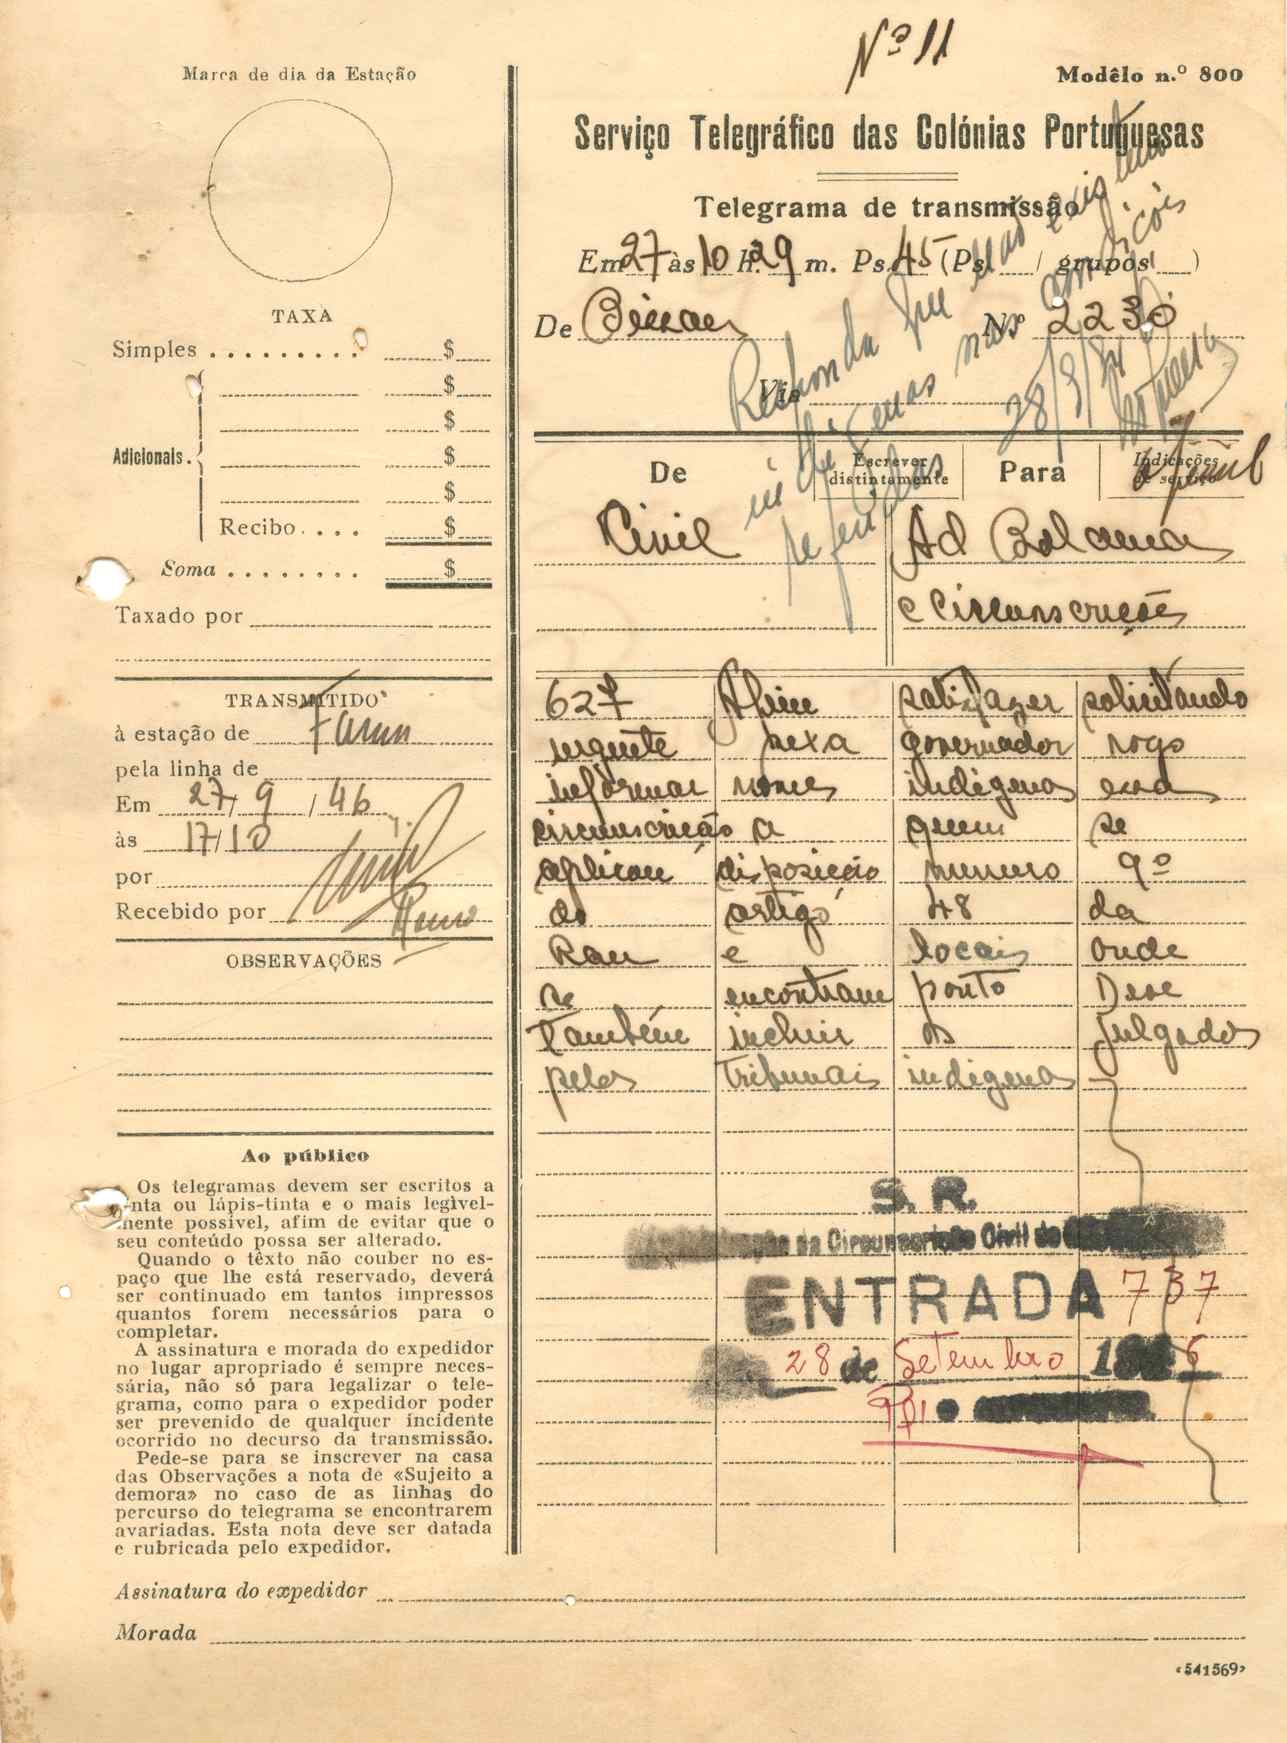 Nº 11
Marca de dia da Estação
Modêlo n.º 800
Serviço Telegráfico das Colónias Portuguesas
Telegrama de transmissão
Em 27 às 10 h. 29 m. Ps. 45 (Ps. / grupos )
De Bissau Nº 2230
Via
Responda que não existem
indígenas nas condições
referidas
28/9/
TAXA
Simples . . . . . . . . . $
$
$
Adicionais. $
$
Recibo . . . $
Soma . . . . . . . . $
Taxado por
De Escrever distintamente Para Indicações de serviço
Civil Ad Bolama
e circunscrições
TRANSMITIDO
à estação de Farim
pela linha de
Em 27/9/46
às 17/10
por
Recebido por
OBSERVAÇÕES
627 Afim satisfazer solicitando
urgente sexa governador rogo
informar nomes indígenas essa
circunscrição a quem se
aplicou disposição numero 9º
do artigo 48 da
Rau e locais onde
se encontram ponto Deve
também incluir os julgados
pelos tribunais indígenas
Ao público
Os telegramas devem ser escritos a
tinta ou lápis-tinta e o mais legivel-
mente possivel, afim de evitar que o
seu conteúdo possa ser alterado.
Quando o têxto não couber no es-
paço que lhe está reservado, deverá
ser continuado em tantos impressos
quantos forem necessários para o
completar.
A assinatura e morada do expedidor
no lugar apropriado é sempre neces-
sária, não só para legalizar o tele-
grama, como para o expedidor poder
ser prevenido de qualquer incidente
ocorrido no decurso da transmissão.
Pede-se para se inscrever na casa
das Observações a nota de «Sujeito a
demora» no caso de as linhas do
percurso do telegrama se encontrarem
avariadas. Esta nota deve ser datada
e rubricada pelo expedidor.
S. R.
da Circunscrição Civil de
ENTRADA 737
28 de Setembro 6
Assinatura do expedidor
Morada
«541569»